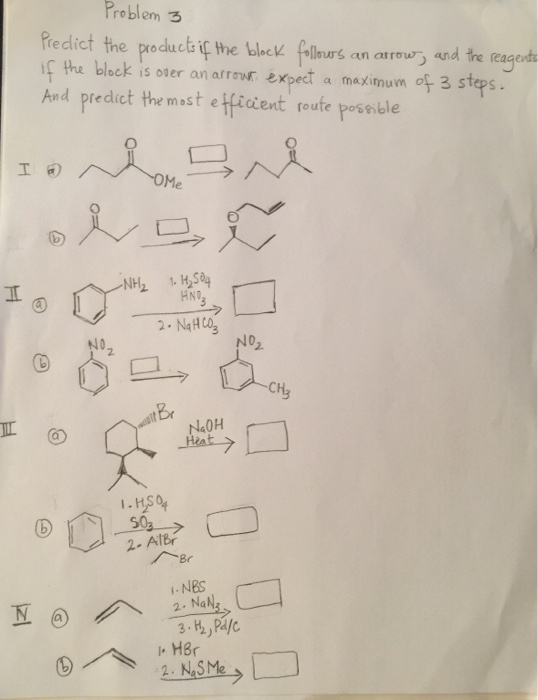 Problem 3
Predict the products if the block follows an arrow, and the reagents
if the block is over an arrow. expect a maximum of 3 steps.
And predict the most efficient route possible
I a) O OMe O
b) O O
II a) NH2 1. H2SO4
HNO3
2. NaHCO3
b) NO2 NO2
CH3
III a) Br NaOH
Heat
b) 1. H2SO4
SO3
2. AlBr
Br
IV a) 1. NBS
2. NaN3
3. H2, Pd/C
b) 1. HBr
2. NaSMe